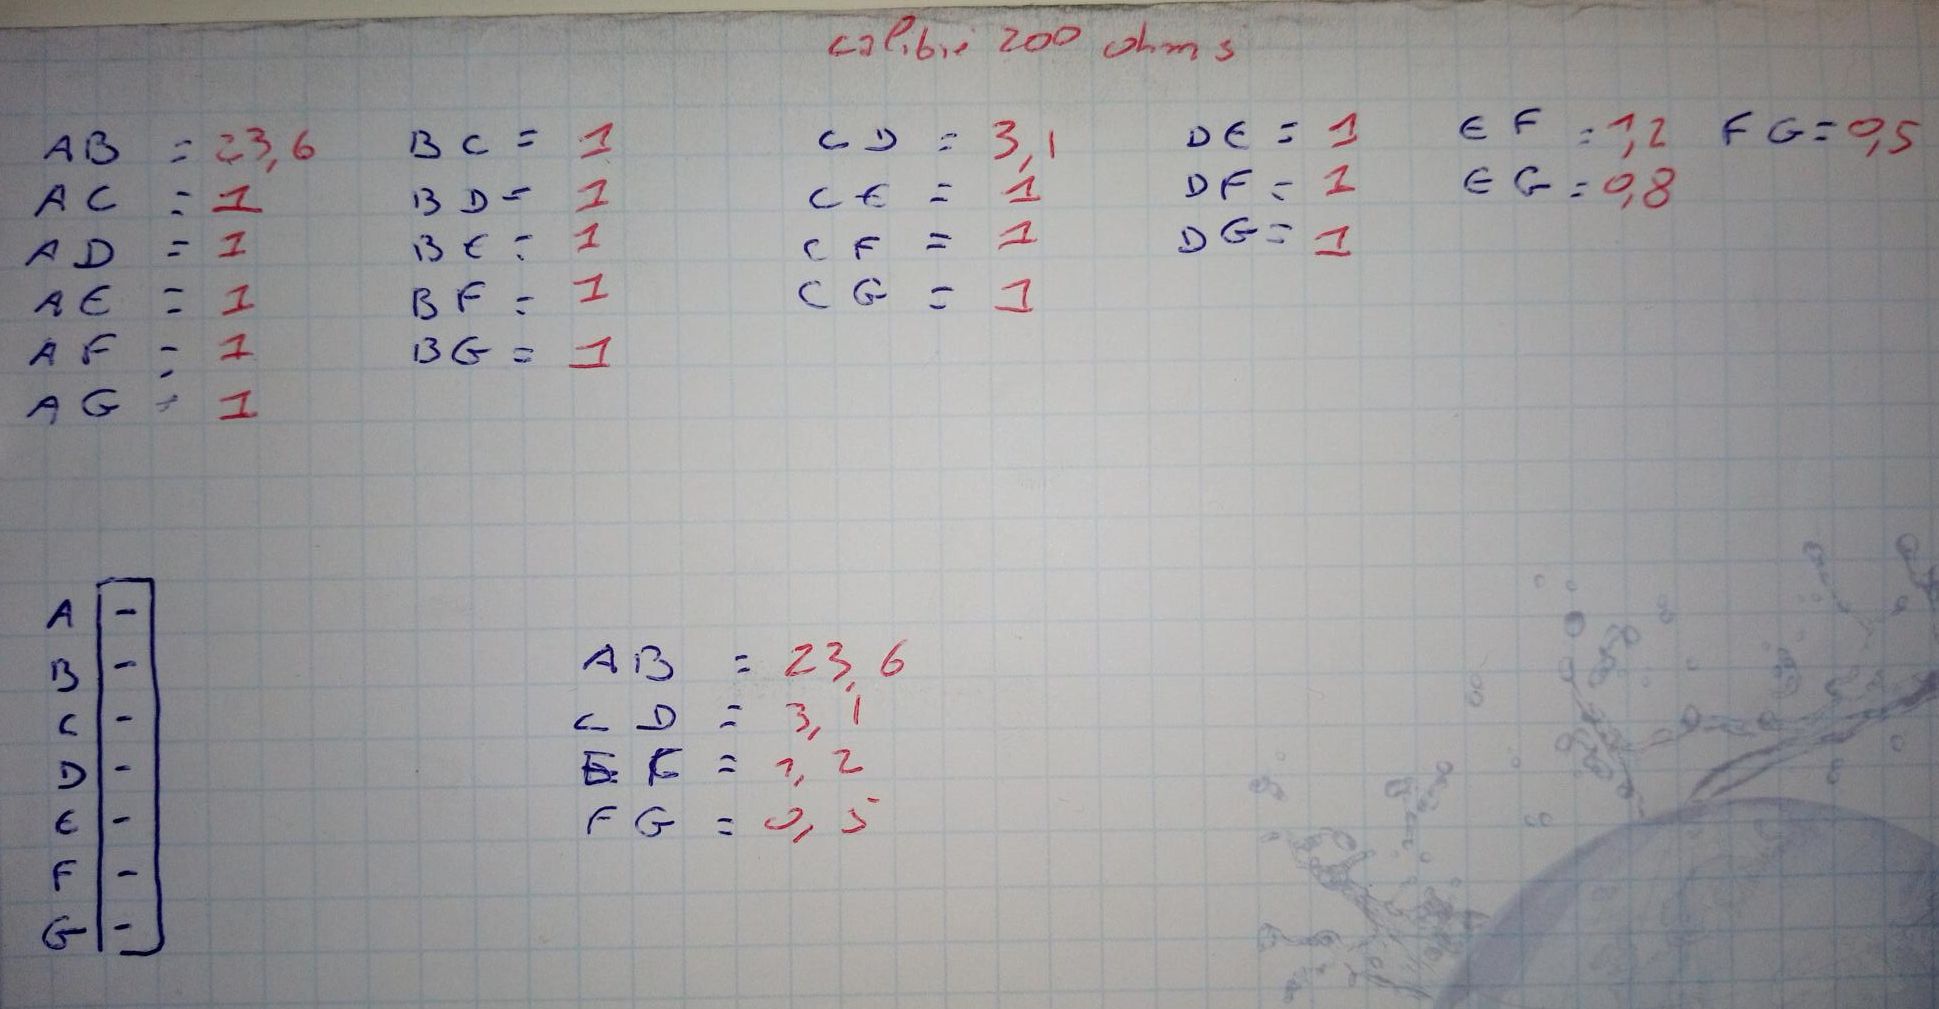 calibre 200 ohms
AB = 23,6 BC = 1 CD = 3,1 DE = 1 EF = 1,2 FG = 0,5
AC = 1 BD = 1 CE = 1 DF = 1 EG = 0,8
AD = 1 BE = 1 CF = 1 DG = 1
AE = 1 BF = 1 CG = 1
AF = 1 BG = 1
AG = 1
A -
B -
C -
D -
E -
F -
G -
AB = 23,6
CD = 3,1
= 1,2
FG = 0,5